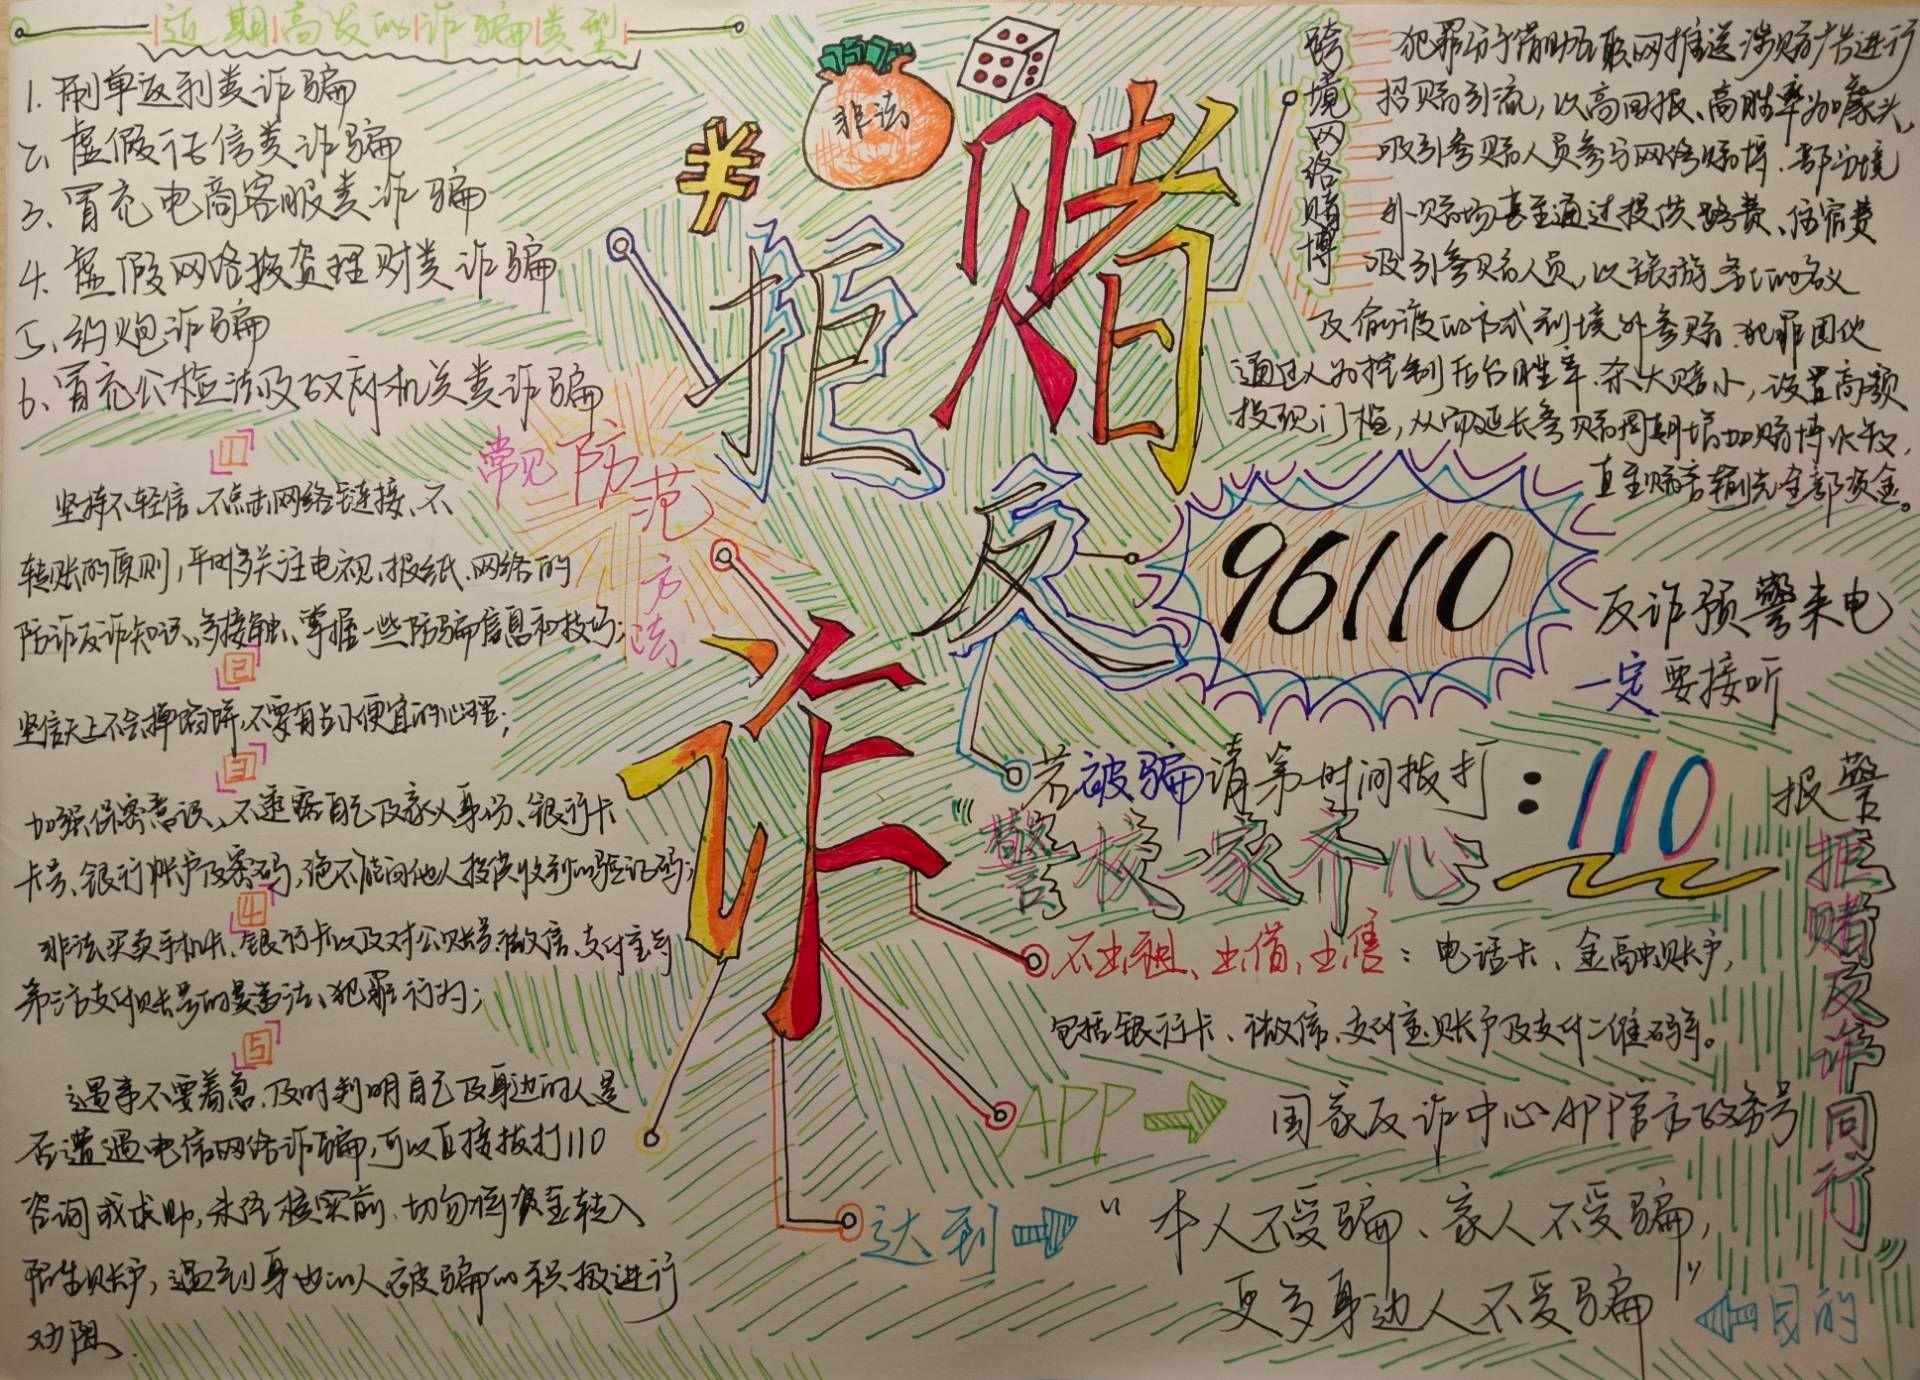 近期高发的诈骗类型
1. 刷单返利类诈骗
2. 虚假征信类诈骗
3. 冒充电商客服类诈骗
4. 虚假网络投资理财类诈骗
5. 约炮诈骗
6. 冒充公检法及政府机关类诈骗
常见防范方法
1
坚持不轻信、不点击网络链接、不
转账的原则，平时多关注电视、报纸、网络的
防诈反诈知识、多接触、掌握一些防骗信息和技巧；
2
坚信天上不会掉馅饼，不要有占小便宜的心理；
3
加强保密意识、不透露自己及家人身份、银行卡
卡号、银行帐户及密码，绝不能向他人提供收到的验证码；
4
非法买卖手机卡、银行卡以及对公账号、微信、支付宝等
第三方支付账号的是违法、犯罪行为；
5
遇事不要着急、及时判明自己及身边的人是
否遭遇电信网络诈骗，可以直接拨打110
咨询或求助，未经核实前、切勿将资金转入
陌生账户，遇到身边的人被骗的积极进行
劝阻.
非法
¥
拒赌
反诈
跨境网络赌博
犯罪分子借助互联网推送涉赌广告进行
招赌引流，以高回报、高胜率为噱头，
吸引参赌人员参与网络赌博.部分境
外赌场甚至通过提供路费、住宿费
吸引参赌人员，以旅游务工的名义
及偷渡的方式到境外参赌.犯罪团伙
通过人为控制后台胜率.杀大赔小，设置高额
提现门槛，从而延长参赌周期增加赌博次数，
直至赌客输光全部资金。
96110
反诈预警来电
一定要接听
若被骗请第一时间拨打：110报警
“警校一家齐心
拒赌反诈同行”
不出租、出借、出售：电话卡、金融账户，
包括银行卡、微信、支付宝账户及支付二维码等。
APP
国家反诈中心APP官方政务号
达到
“本人不受骗、家人不受骗，
更多身边人不受骗”
目的